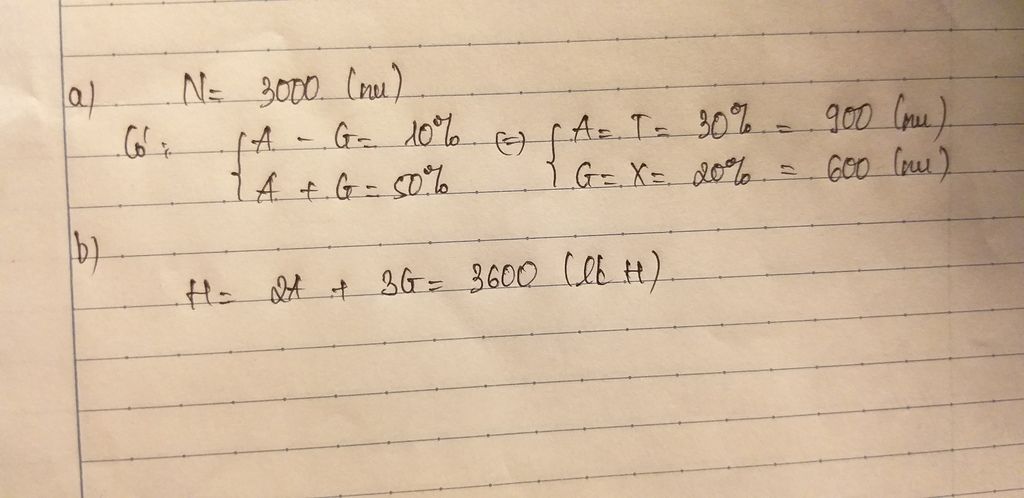 a) N = 3000 (nu)
Có : { A - G = 10% (=) { A = T = 30% = 900 (nu)
{ A + G = 50% { G = X = 20% = 600 (nu)
b)
H = 2A + 3G = 3600 (lk H)